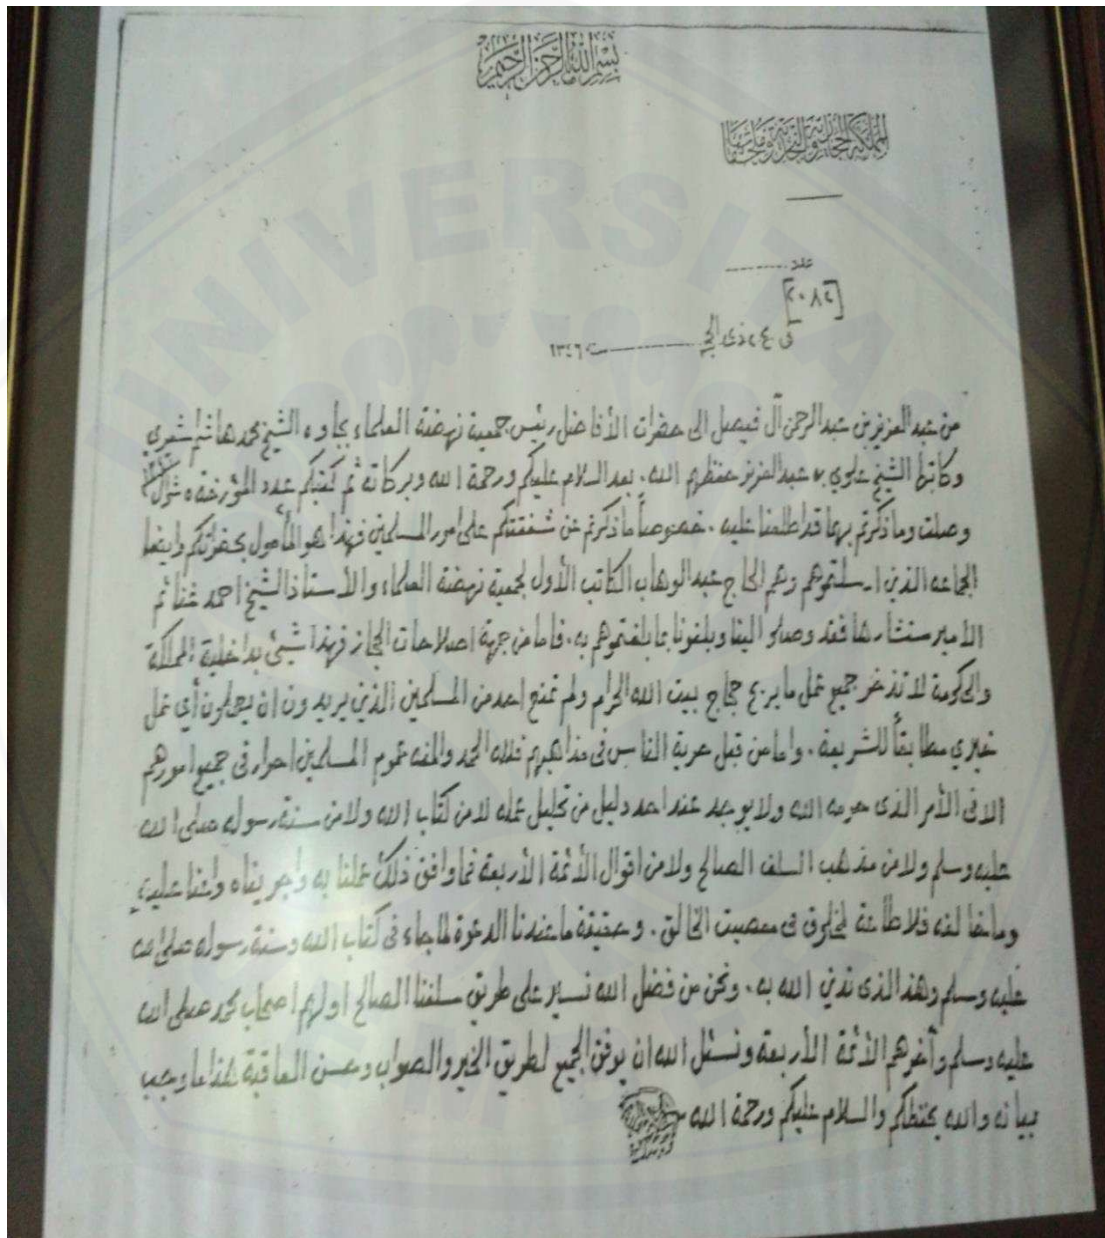 بسم الله الرحمن الرحيم
المملكة الحجازية والنجدية وملحقاتها
عدد
[٢٠٨٢]
فى ٢٤ ذى الحجه سنة ١٣٤٦
من عبد العزيز بن عبد الرحمن آل فيصل الى حضرات الأفاضل رئيس جمعية نهضة العلماء بجاوه الشيخ محمد هاشم اشعرى
وكاتبها الشيخ علوي بن عبد العزيز حفظهم الله . بعد السلام عليكم ورحمة الله وبركاته ثم كتبكم عدد المؤرخة ٥ شوال
وصلت وما ذكرتم بها قد اطلعنا عليه . خصوصاً ما ذكرتم عن شفقتكم على امور المسلمين فهذا هو المأمول بحضرتكم وايضا
الجماعه الذين ارسلتموهم وهم الحاج عبد الوهاب الكاتب الأول لجمعية نهضة العلماء والأستاذ الشيخ احمد غنائم
الأمير مستشارها فقد وصلوا الينا وبلغونا بما بلغتموهم به . فاما من جهة اصلاحات الحجاز فهذا شيئ بداخلية المملكة
والحكومة لا تذخر جميع عمل ما يريح حجاج بيت الله الحرام ولم تمنع احد من المسلمين الذين يريدون ان يعملون أي عمل
خيري مطابقاً للشريعة . واما من قبل حرية الناس فى مذاهبهم فلله الحمد والمنه عموم المسلمين احرار فى جميع امورهم
الا فى الأمر الذى حرمه الله ولا يوجد عند احد دليل من تحليل عمله لا من كتاب الله ولا من سنة رسوله صلى الله
عليه وسلم ولا من مذهب السلف الصالح ولا من اقوال الأئمة الأربعة فما وافق ذلك عملنا به وأجريناه واعنا عليه
وما خالفه فلا طاعة لمخلوق فى معصيت الخالق . وحقيقة ما عندنا الدعوة لما جاء فى كتاب الله وسنة رسوله صلى الله
عليه وسلم وهذا الذى ندين الله به . ونحن من فضل الله نسير على طريق سلفنا الصالح اولهم اصحاب محمد صلى الله
عليه وسلم وأخرهم الأئمة الأربعة ونسئل الله ان يوفق الجميع لطريق الخير والصواب وحسن العاقبة هذا ما وجب
بيانه والله يحفظكم والسلام عليكم ورحمة الله
UNIVERSITAS